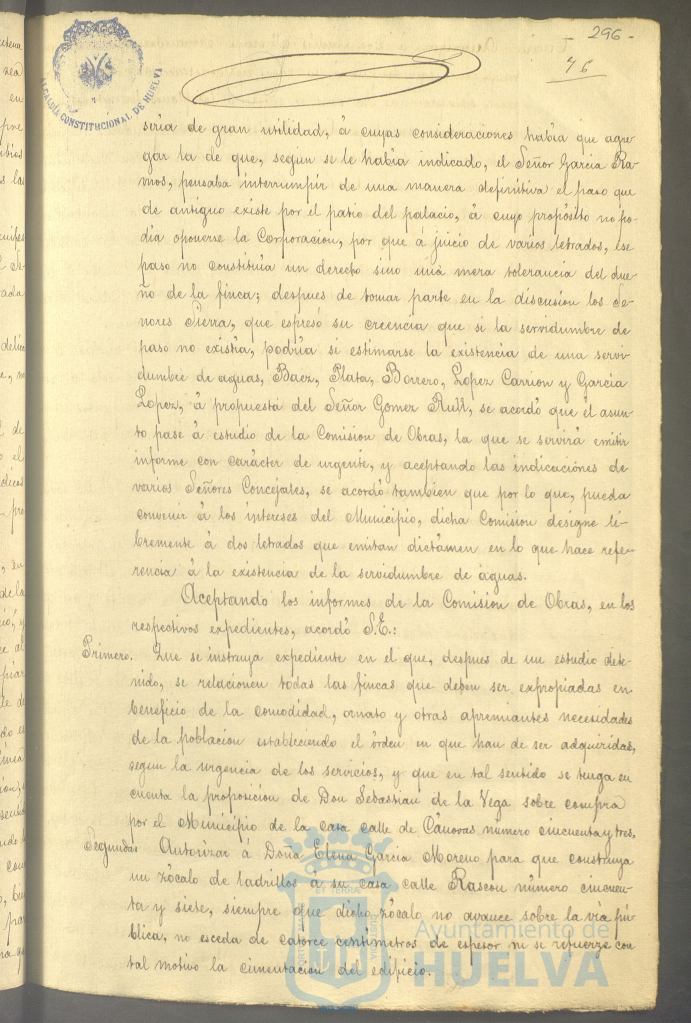 296-
76
ALCALDIA CONSTITUCIONAL DE HUELVA
sería de gran utilidad, á cuyas consideraciones habia que agre-
gar la de que, segun se le habia indicado, el Señor Garcia Ra-
mos, pensaba interrumpir de una manera definitiva el paso que
de antiguo existe por el patio del palacio, á cuyo propósito no po-
dia oponerse la Corporacion, por que á juicio de varios letrados, ese
paso no constituia un derecho sino una mera tolerancia del due-
ño de la finca; despues de tomar parte en la discusion los Se-
ñores Sierra, que espresó su creencia que si la servidumbre de
paso no existia, podria si estimarse la existencia de una servi-
dumbre de aguas, Baez, Plata, Borrero, Lopez Carrion y Garcia
Lopez, á propuesta del Señor Gomez Rull, se acordó que el asun-
to pase á estudio de la Comision de Obras, la que se servirá emitir
informe con carácter de urgente, y aceptando las indicaciones de
varios Señores Concejales, se acordó tambien que por lo que, pueda
convenir á los intereses del Municipio, dicha Comision designe li-
bremente á dos letrados que emitan dictámen en lo que hace refe-
rencia á la existencia de la servidumbre de aguas.
Aceptando los informes de la Comision de Obras, en los
respectivos expedientes, acordó S.E.:
Primero. Que se instruya expediente en el que, despues de un estudio dete-
nido, se relacionen todas las fincas que deben ser expropiadas en
beneficio de la comodidad, ornato y otras apremiantes necesidades
de la poblacion estableciendo el órden en que han de ser adquiridas,
segun la urgencia de los servicios, y que en tal sentido se tenga en
cuenta la proposicion de Don Sebastian de la Vega sobre compra
por el Municipio de la casa calle de Cánovas número cincuenta y tres.
Segundo: Autorizar á Doña Elena Garcia Moreno para que construya
un zócalo de ladrillos á su casa calle Rascon número cincuen-
ta y siete, siempre que dicho zócalo no avance sobre la via pú-
blica, no esceda de catorce centimetros de espesor ni se refuerze con
tal motivo la cimentacion del edificio.
Ayuntamiento de
HUELVA